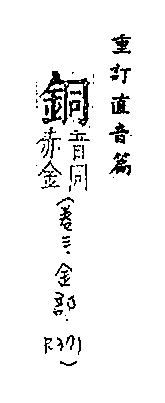 重訂直音篇
銅 音同
赤金
(卷三·金部
P.371)